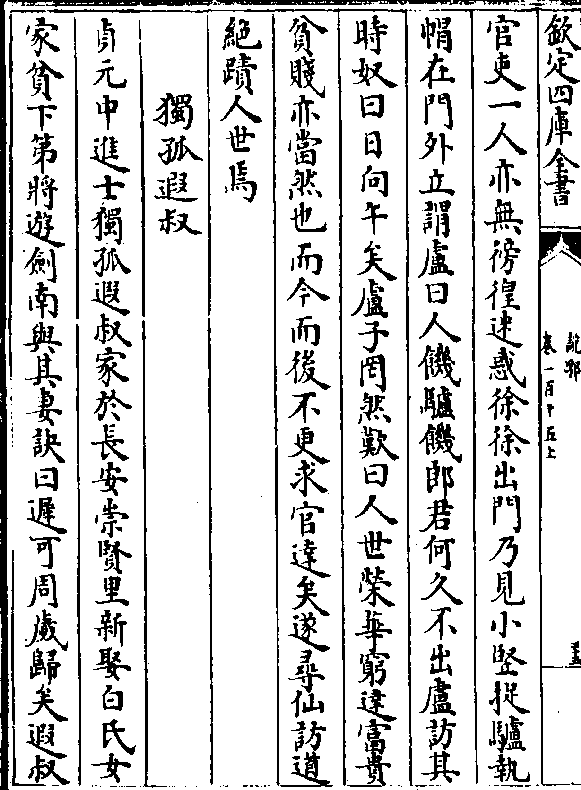 欽定四庫全書
說郛
卷一百十五上
官吏一人亦無徬徨迷惑徐徐出門乃見小竪捉驢執
帽在門外立謂盧曰人饑驢饑郎君何久不出盧訪其
時奴曰日向午矣盧子罔然歎曰人世榮華窮達富貴
貧賤亦當然也而今而後不更求官達矣遂尋仙訪道
絶蹟人世焉
獨孤遐叔
貞元中進士獨孤遐叔家於長安崇賢里新娶白氏女
家貧下第將遊劍南與其妻訣曰遲可周歲歸矣遐叔